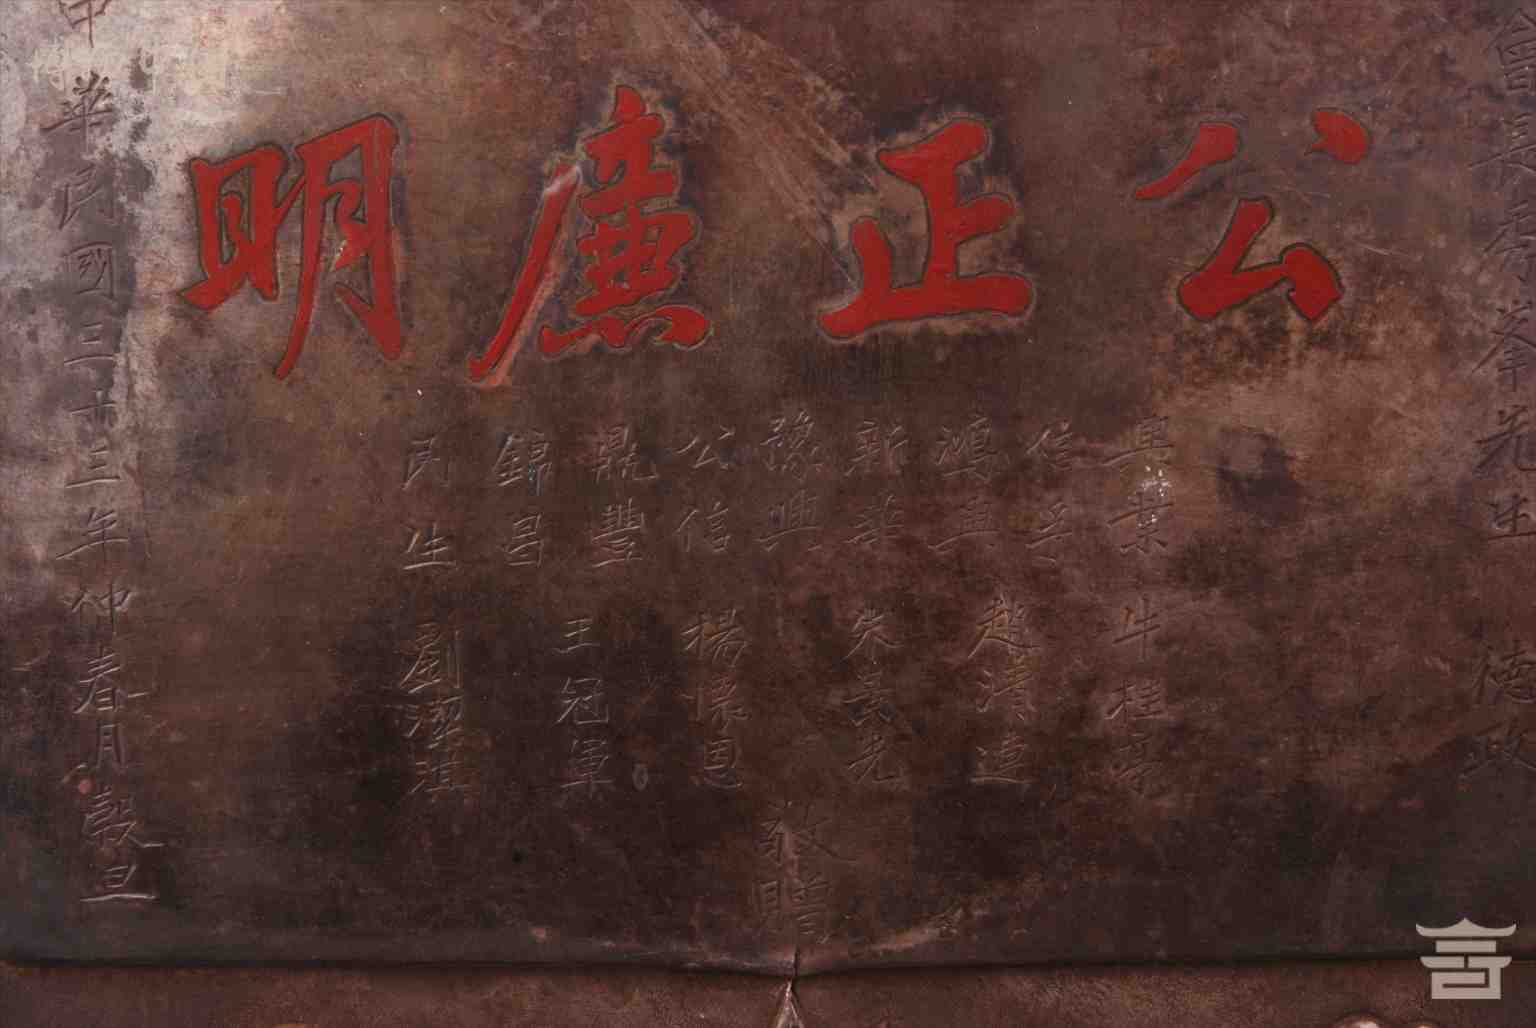 會長季華先生 德政
公正廉明
興業
信孚
鴻興
新華
豫興
公信
鼎豐
錦昌
民生
牛桂亭
趙清遠
朱景光
楊懷恩
王冠軍
劉潔淇
敬贈
中華民國三十三年仲春月穀旦